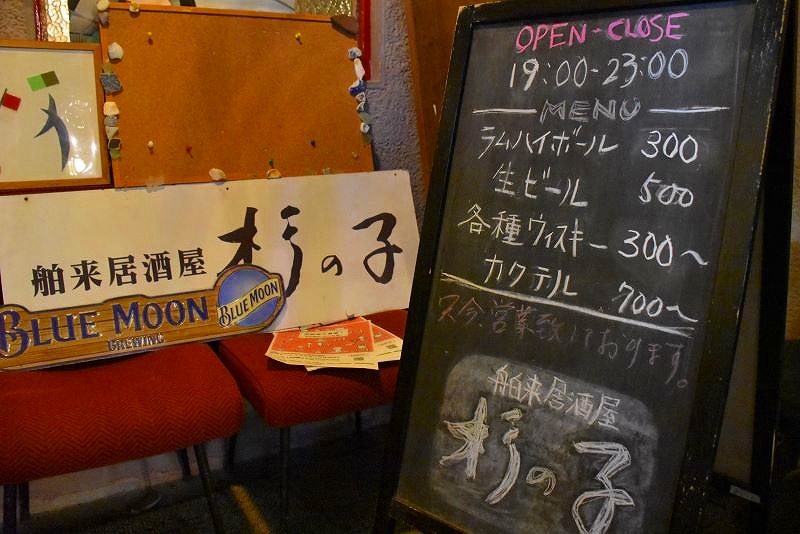 舶来居酒屋 杉の子
BLUE MOON
BREWING
BLUE MOON
OPEN-CLOSE
19:00-23:00
MENU
ラムハイボール 300
生ビール 500
各種ウィスキー 300〜
カクテル 700〜
只今、営業致しております。
舶来居酒屋
杉の子